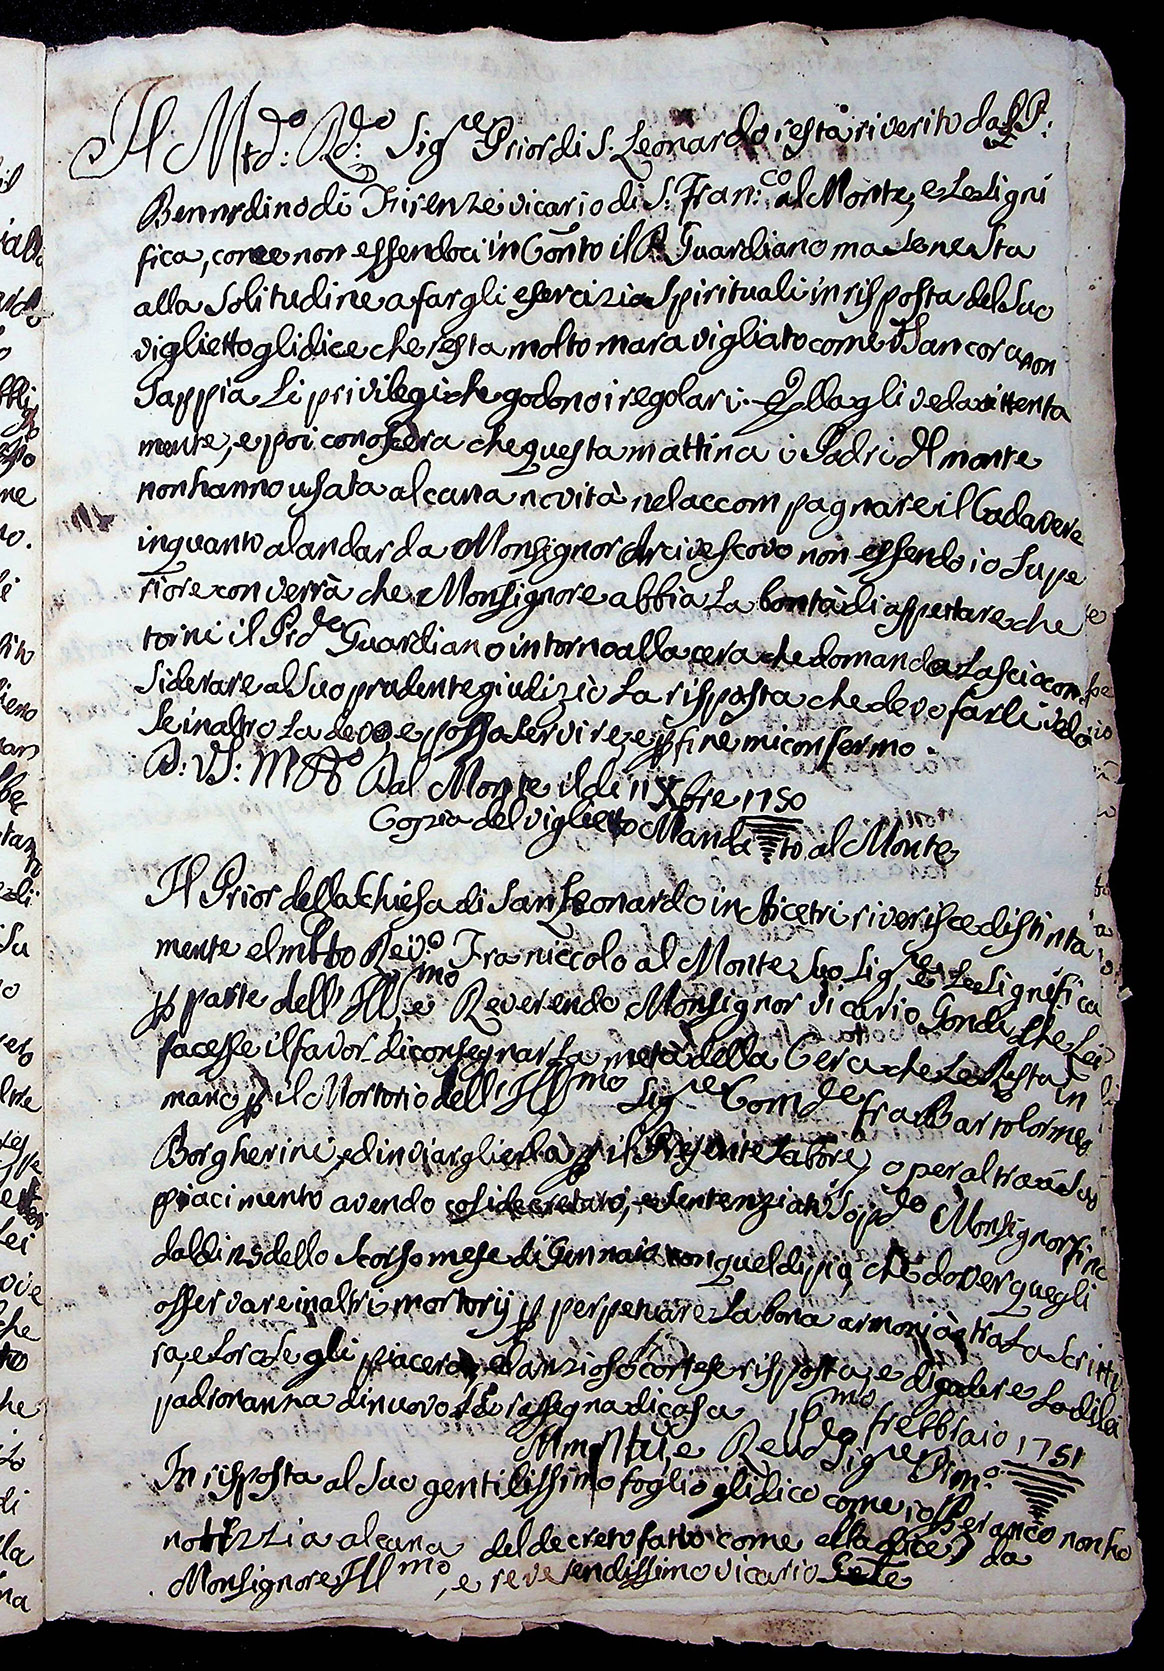 Il Mtdo: Rdo: Sigre Prior di S. Leonardo resta riverito dal P:
Bernardino di Firenze vicario di S. Fran:co al Monte, e le signi
fica, come non essendoci in Conto il P. Guardiano ma se ne sta
alla Solitudine a far gli esercizia Spirituali in risposta del Suo
viglietto gli dice che resta molto maravigliato come VS ancora non
Sappia Li privilegi che godono i regolari. E la gli veda attenta
mente, e poi conoscera che questa mattina i Padri del monte
non hanno usata alcuna novità nel accompagnare il Cadavere
in quanto al andar da Monsignor Arcivescovo non essendo io Supe
riore converrà che Monsignore abbia La bontà di aspettare che
torni il Prde Guardiano intorno alla cera che domanda Lascio con
siderare al Suo prudente giudizio La risposta che devo farli vedo
Se in altro La devo, e possa servire, e p fine mi confermo.
D: VS: M Dal Monte il dì 11 Xbre 1750
Copia del viglietto Manda to al Monte
Il Prior della Chiesa di San Leonardo in Arcetri riverisce distinta
mente el mtto Revdo Fra niccolo al Monte Suo Sigre, e Le Significa
p parte dell' Illmo e Reverendo Monsignor Vicario Gondi che Lei
facesse il favor di consegnar La metà della Cera che Le Resta in
mano p il Mortorio dell' Illmo Sigre Comde fra Bartolomeo
Borgherini, ed inviarglierla p il Presente Latore, o per altra à Suo
piacimento avendo cosi decretato, e sentenziato Sopdo Monsignor fino
dal dì 25 dello Scorso mese di Gennaio con quel di più che dover quegli
osservare in altri mortorij p perpetuare La bona armonia tra La Scrittu
ra, e Lor Se gli piacerà, ed anzioso cortese risposta, e di goder e La di Lei
padronanna di nuovo Si rassegna di casa pmo frebbraio 1751
M Illtre, e Revdo Sigre Pmo:
In risposta al Suo gentilissimo foglio gli dico come io Per anco non ho
notizzia alcuna del decreto fatto come ella dice, da
Monsignore Illmo, e reverendissimo vicario